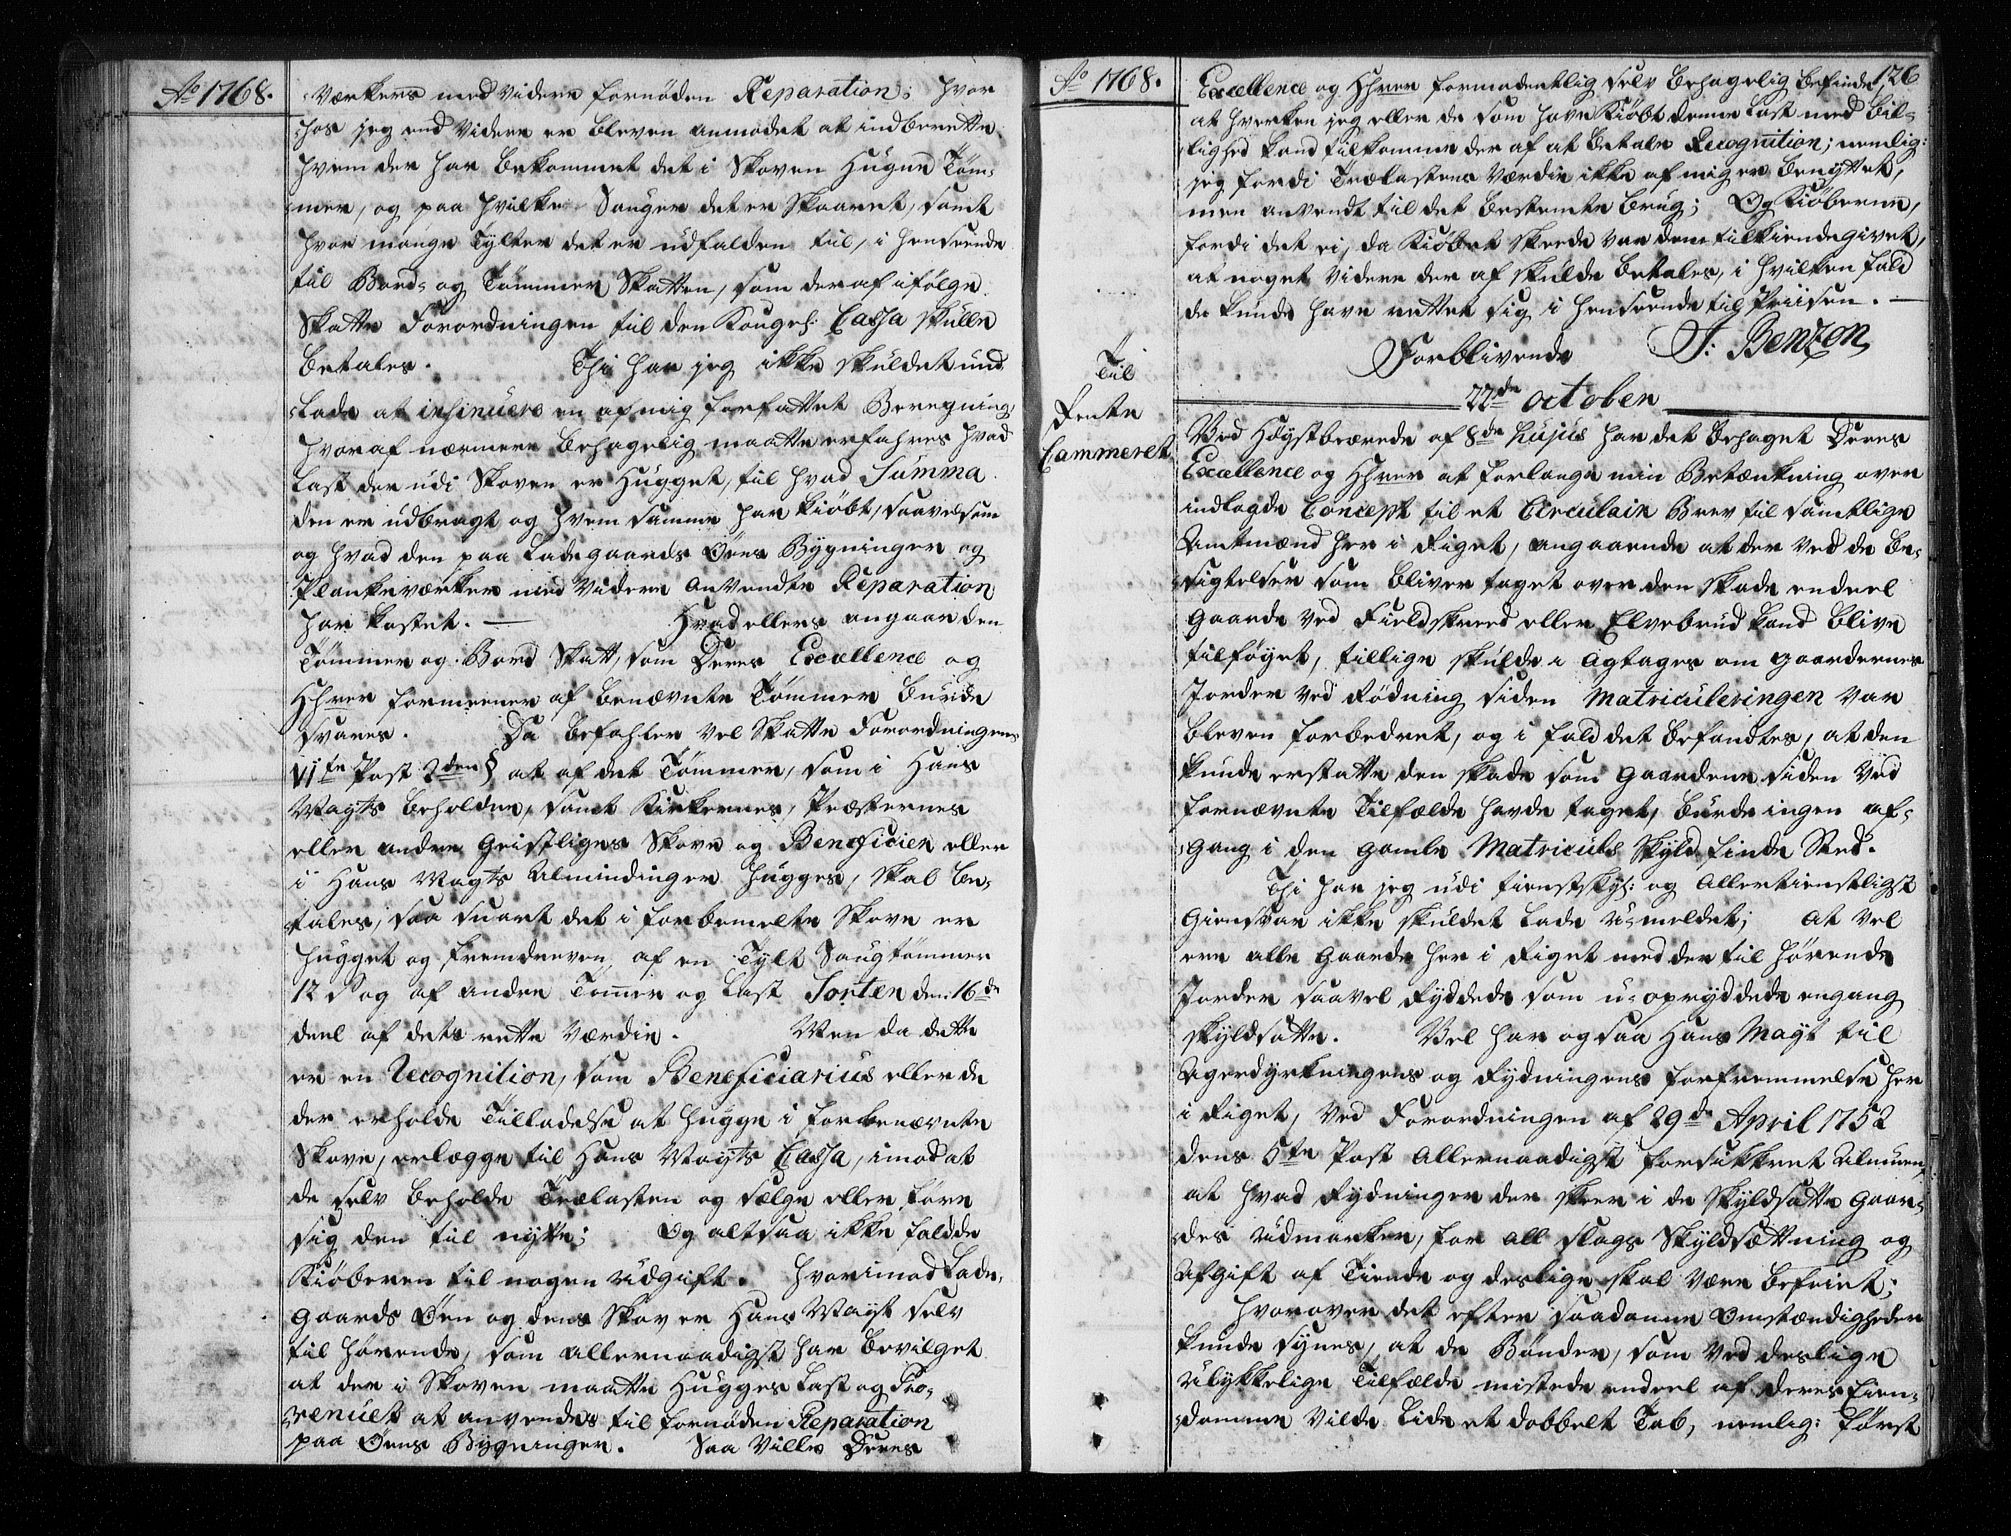 Ao 1768.
værkers med videre fornøden Reparation; hvor
hos jeg end videre er bleven anmodet at indberette
hvem der har bekommet det i Skoven hugne Tøm-
mer, og paa hvilke Sauger det er skaaret, samt
hvor mange Tylter det er udfalden til, i henseende
til Bord- og Tømmer Skatten, som deraf ifølge
Skatte Forordningen til den Kongel: Cassa skulle
betales. Thi har jeg ikke skuldet und-
lade at insinuere en af mig forfattet Beregning,
hvoraf nærmere behagelig maatte erfahres hvad
Last der udi Skoven er hugget, til hvad Summa
den er udbragt og hvem samme har kiøbt, saavelsom
og hvad den paa Ladegaards Øens Bygninger og
Plankeværker med videre anvendte Reparation
har kostet. — Hvad ellers angaar den
Tømmer og Bord Skatt, som Deres Excellence og
HHrer formeener af benævnte Tømmer burde
svares. Da befahler vel Skatte Forordningens
VIte Post 2den § at af det Tømmer, som i Hans
Mayts beholdne, samt Kirkernes, Præsternes
eller andre Geistliges Skove og Beneficier eller
i Hans Mayts Almindinger hugges, skal be-
tales, saa snart det i forbemelte Skove er
hugget og fremdreven, af en Tylt Saugtømmer
12 s og af andre Tømer og Last Sorten den 16de
deel af dets rette Værdie. Men da dette
er en Recognition, som Beneficiarius eller de
der erholde Tilladelse at hugge i forbenævnte
Skove, erlægge til Hans Mayts Cassa, imod at
de selv beholde Trælasten og sælge eller føre
sig den til nytte; Og altsaa ikke faldde
Kiøberen til nogen Udgift. Hvorimod Lade-
gaards Øen og dens Skov er Hans Mayt selv
til hørende, som allernaadigst har bevilget
at der i Skoven maatte hugges Last og Pro-
venuet at anvendes til fornøden Reparation
paa Øens Bygninger. Saa ville Deres
Ao 1768.
126
Excellence og HHrer formodentlig selv behagelig befinde,
at hverken jeg eller de som have Kiøbt denne Last med bil-
lighed kand tilkomme der af at betale Recognition; nemlig:
jeg fordi Trælastens Værdie ikke af mig er benyttet,
men anvendt til det bestemte brug; Og Kiøberne,
fordi det ei, da Kiøbet skeede var dem tilkiendegivet,
at noget videre der af skulde betales, i hvilken fald
de kunde have rettet sig i henseende til Priisen. —
Forblivende J: Benzon
22de October
Til
Rente
Cammeret
Ved Høystbeærede af 8de hujus har det behaget Deres
Excellence og HHrer at forlange min Betænkning over
indlagde Concept til et Circulair Brev til samtlige
Amtmænd her i Riget, angaaende at der ved de be-
sigtelser som bliver taget over den skade endeel
Gaarde ved Fieldskreed eller Elvebrud kand blive
tilføyet, tillige skulde i agtages om Gaardernes
Jorder ved Rødning siden Matriculeringen var
bleven forbedret, og i fald det befandtes, at den
kunde erstatte den skade som Gaardene siden ved
fornævnte Tilfælde havde taget, burde ingen af-
gang i den gamle Matriculs Skyld finde Sted.
Thi har jeg udi tienstskyl: og Allertienstligst
Giensvar ikke skuldet lade u-meldet; At vel
ere alle Gaarde her i Riget med der til hørende
Jorder saavel Ryddede som u-opryddede engang
skyldsatte. Vel har og saa Hans Mayt til
Agerdyrkningens og Rydningens forfremmelse her
i Riget, ved Forordningen af 29de April 1752
dens 5te Post Allernaadigst forsikkret Almuen,
at hvad Rydninger der skeer i de Skyldsatte Gaar-
des Udmarker, for all slags Skyldsættning og
Afgift af Tiende og deslige skal være befriet;
Hvorover det efter saadanne Omstændigheder
kunde synes, at de Bønder, som ved deslige
Ulykkelige Tilfælde mistede endeel af deres Eien-
domme vilde lide et dobbelt Tab, nemlig: først